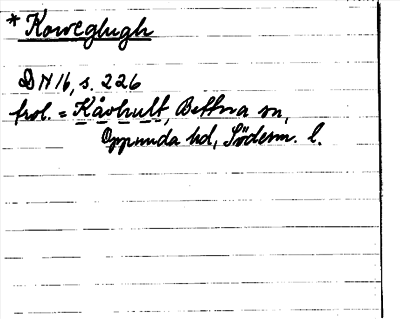 * Koweglugh
DN 16, s. 226
trol. = Kåvhult, Bettna sn,
Oppunda hd, Söderm. l.